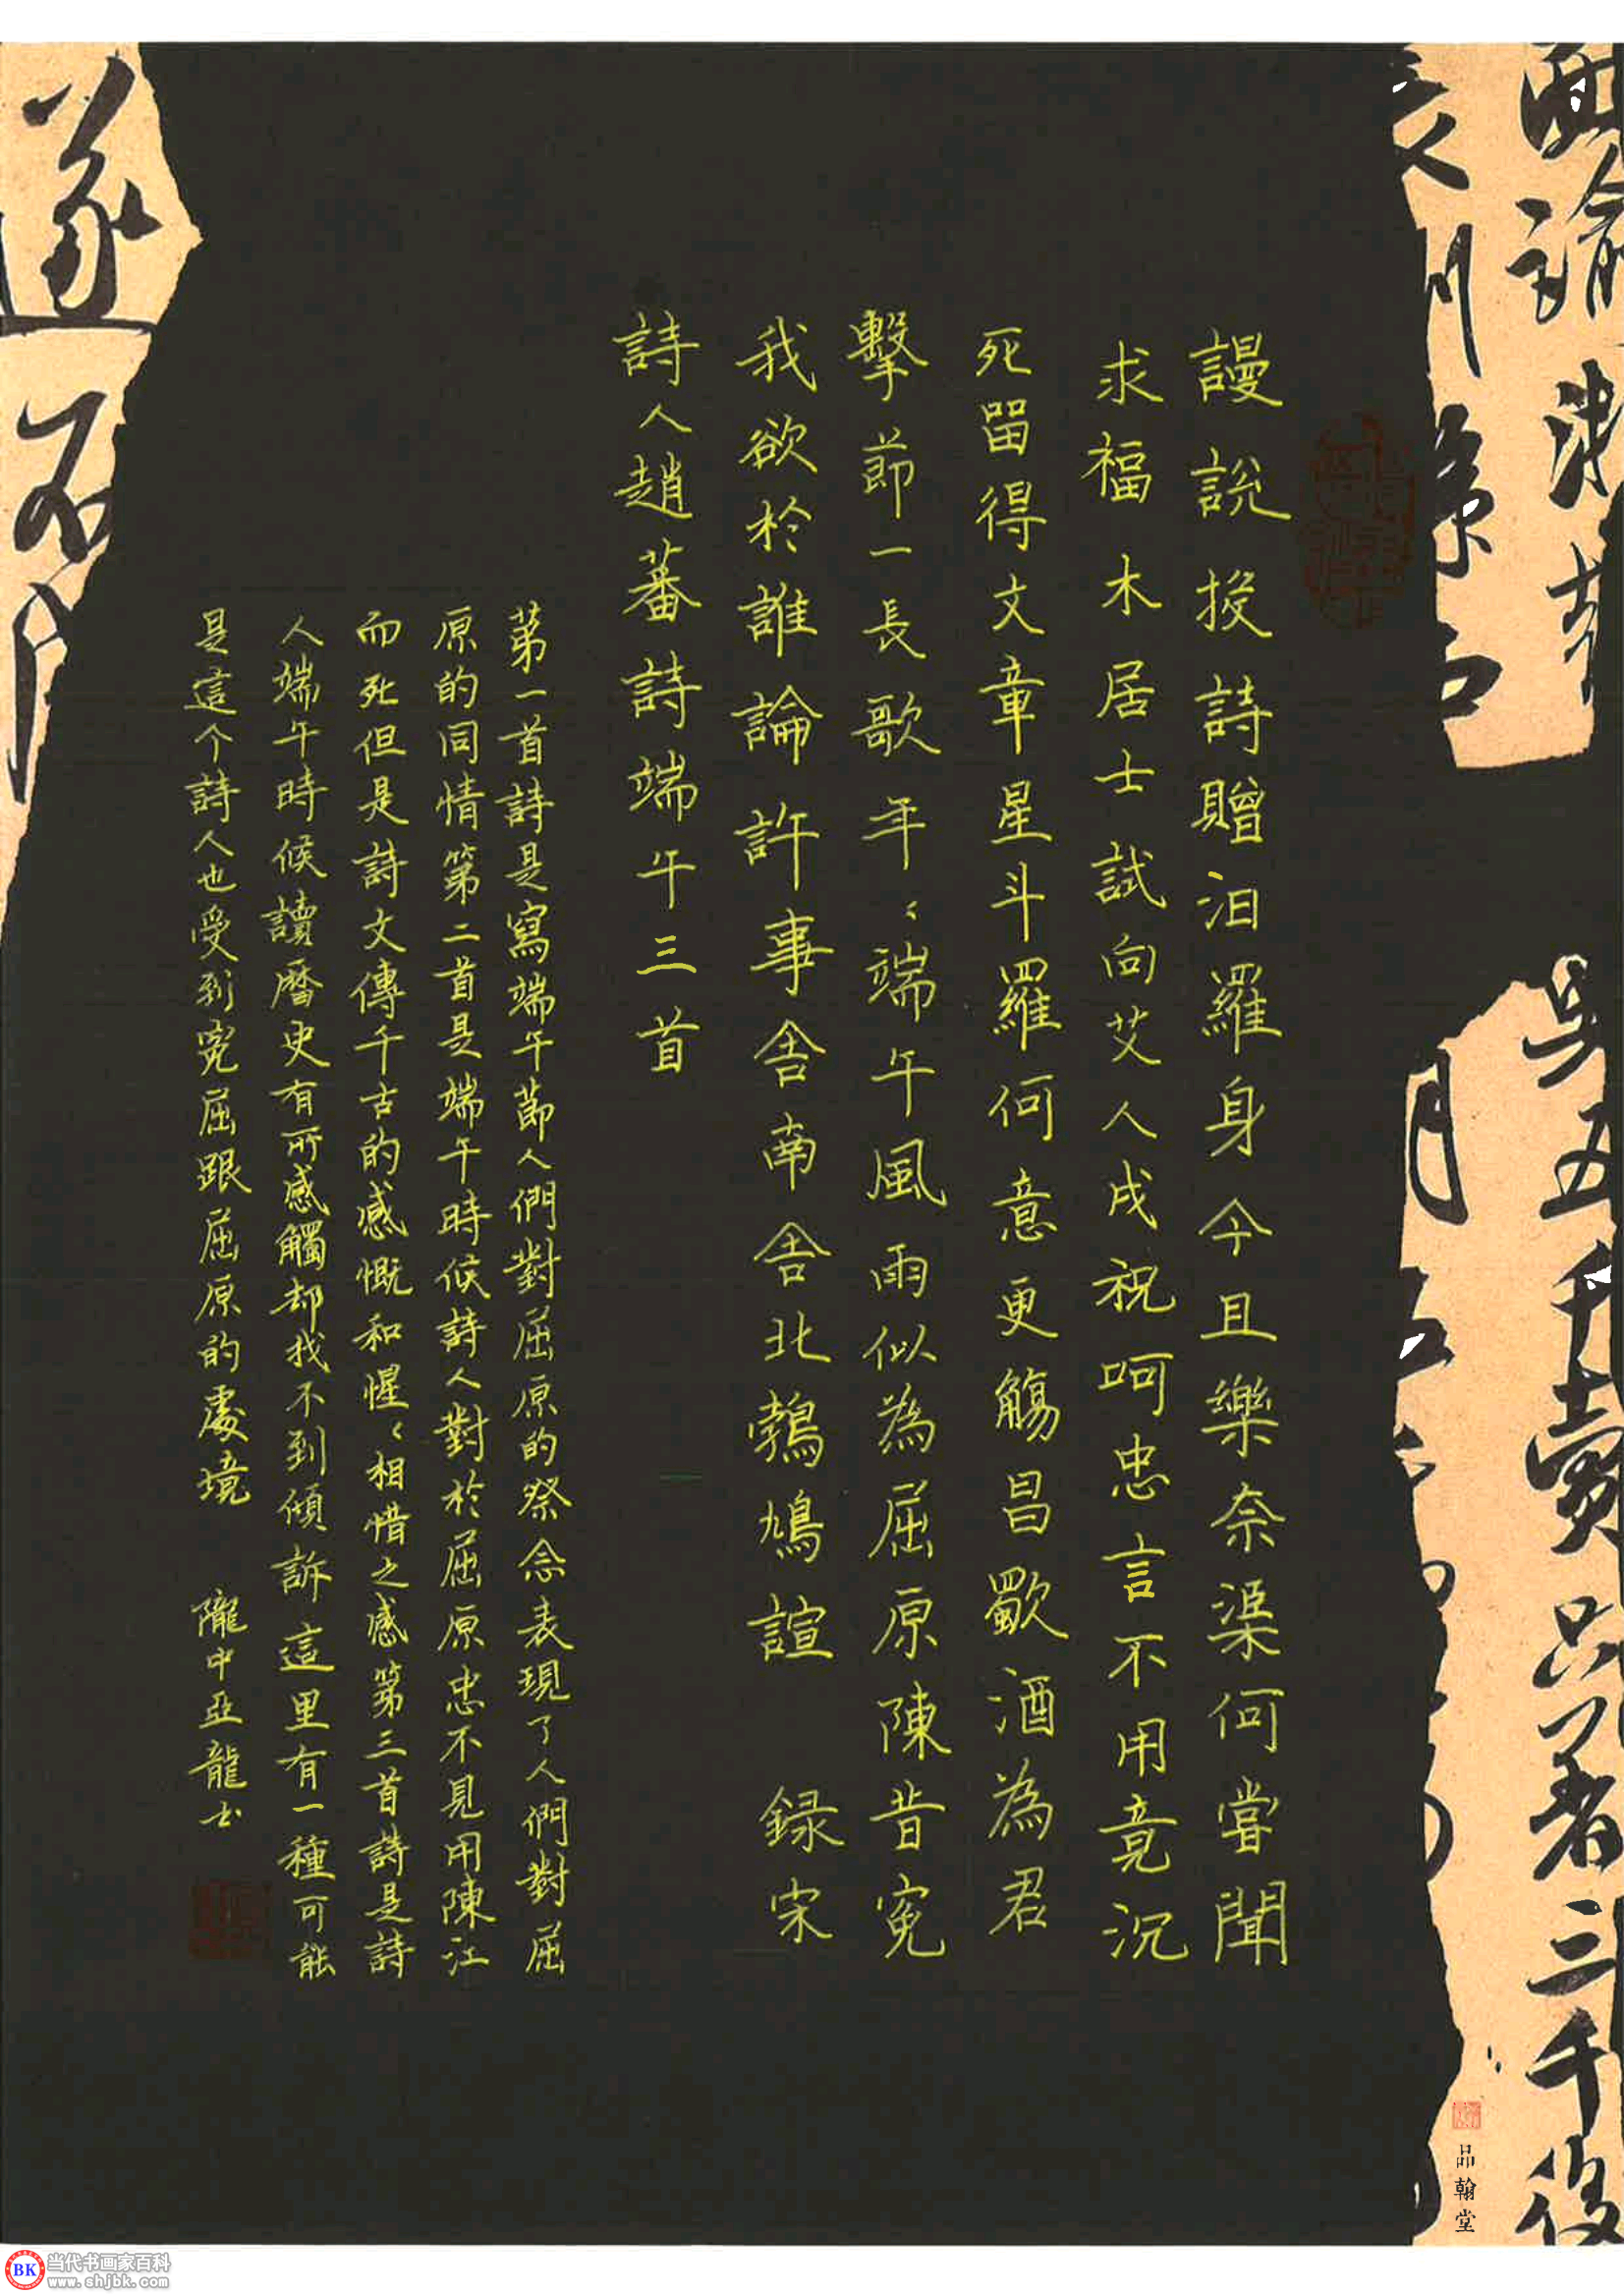 謾說投詩贈汨羅身今且樂奈渠何嘗聞
求福木居士試向艾人成祝呵忠言不用竟沉
死留得文章星斗羅何意更觴昌歜酒為君
擊節一長歌年〻端午風雨似為屈原陳昔寃
我欲於誰論許事舍南舍北鵓鳩諠 録宋
詩人趙蕃詩端午三首
第一首詩是寫端午節人們對屈原的祭念表現了人們對屈
原的同情第二首是端午時候詩人對於屈原忠不見用陳江
而死但是詩文傳千古的感慨和惺〻相惜之感第三首詩是詩
人端午時候讀曆史有所感觸却找不到傾訴這里有一種可能
是這个詩人也受到寃屈跟屈原的處境 隴中亞龍书
品翰堂
五千賣只著三千後
遂
石
BK 当代书画家百科
www.shjbk.com